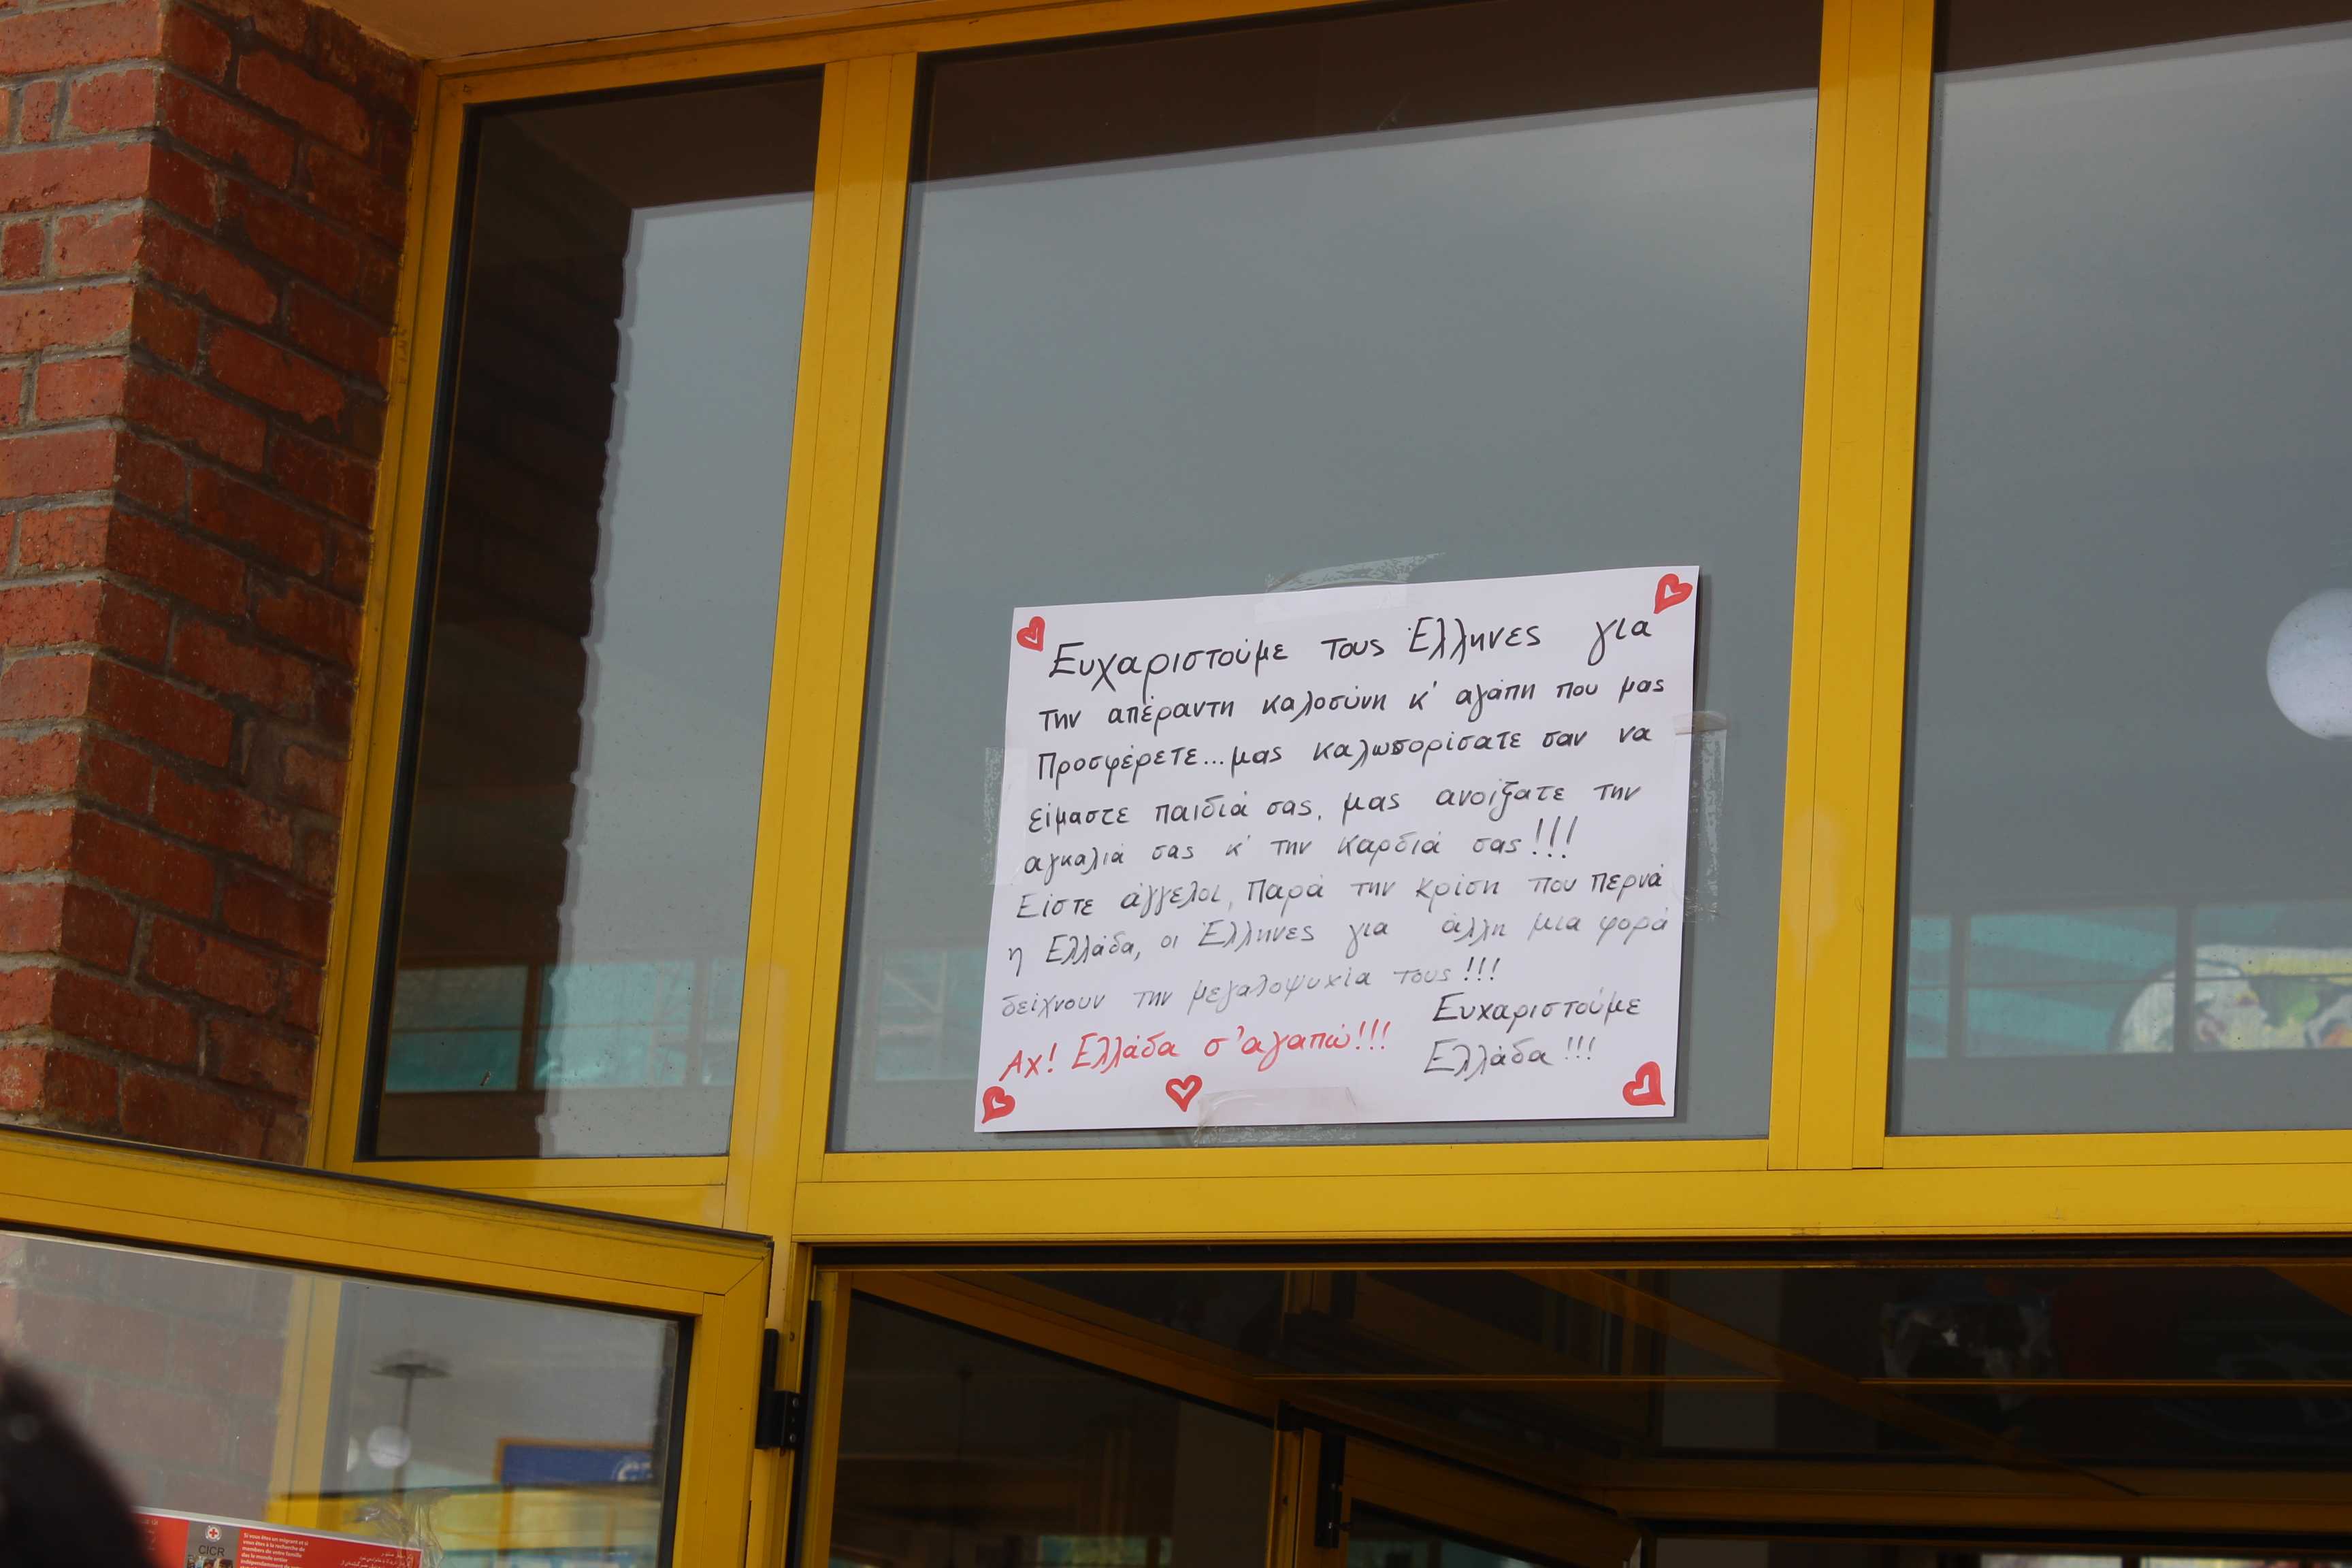 Ευχαριστούμε τους Έλληνες για
την απέραντη καλοσύνη κ' αγάπη που μας
Προσφέρετε...μας καλωσορίσατε σαν να
είμαστε παιδιά σας, μας ανοίξατε την
αγκαλιά σας κ' την καρδιά σας!!!
Είστε άγγελοι, Παρά την κρίση που περνά
η Ελλάδα, οι Έλληνες για άλλη μια φορά
δείχνουν την μεγαλοψυχία τους!!!
Αχ! Ελλάδα σ'αγαπώ!!!
Ευχαριστούμε
Ελλάδα!!!
CICR
Si vous êtes un migrant et si
vous êtes à la recherche de
membres de votre famille